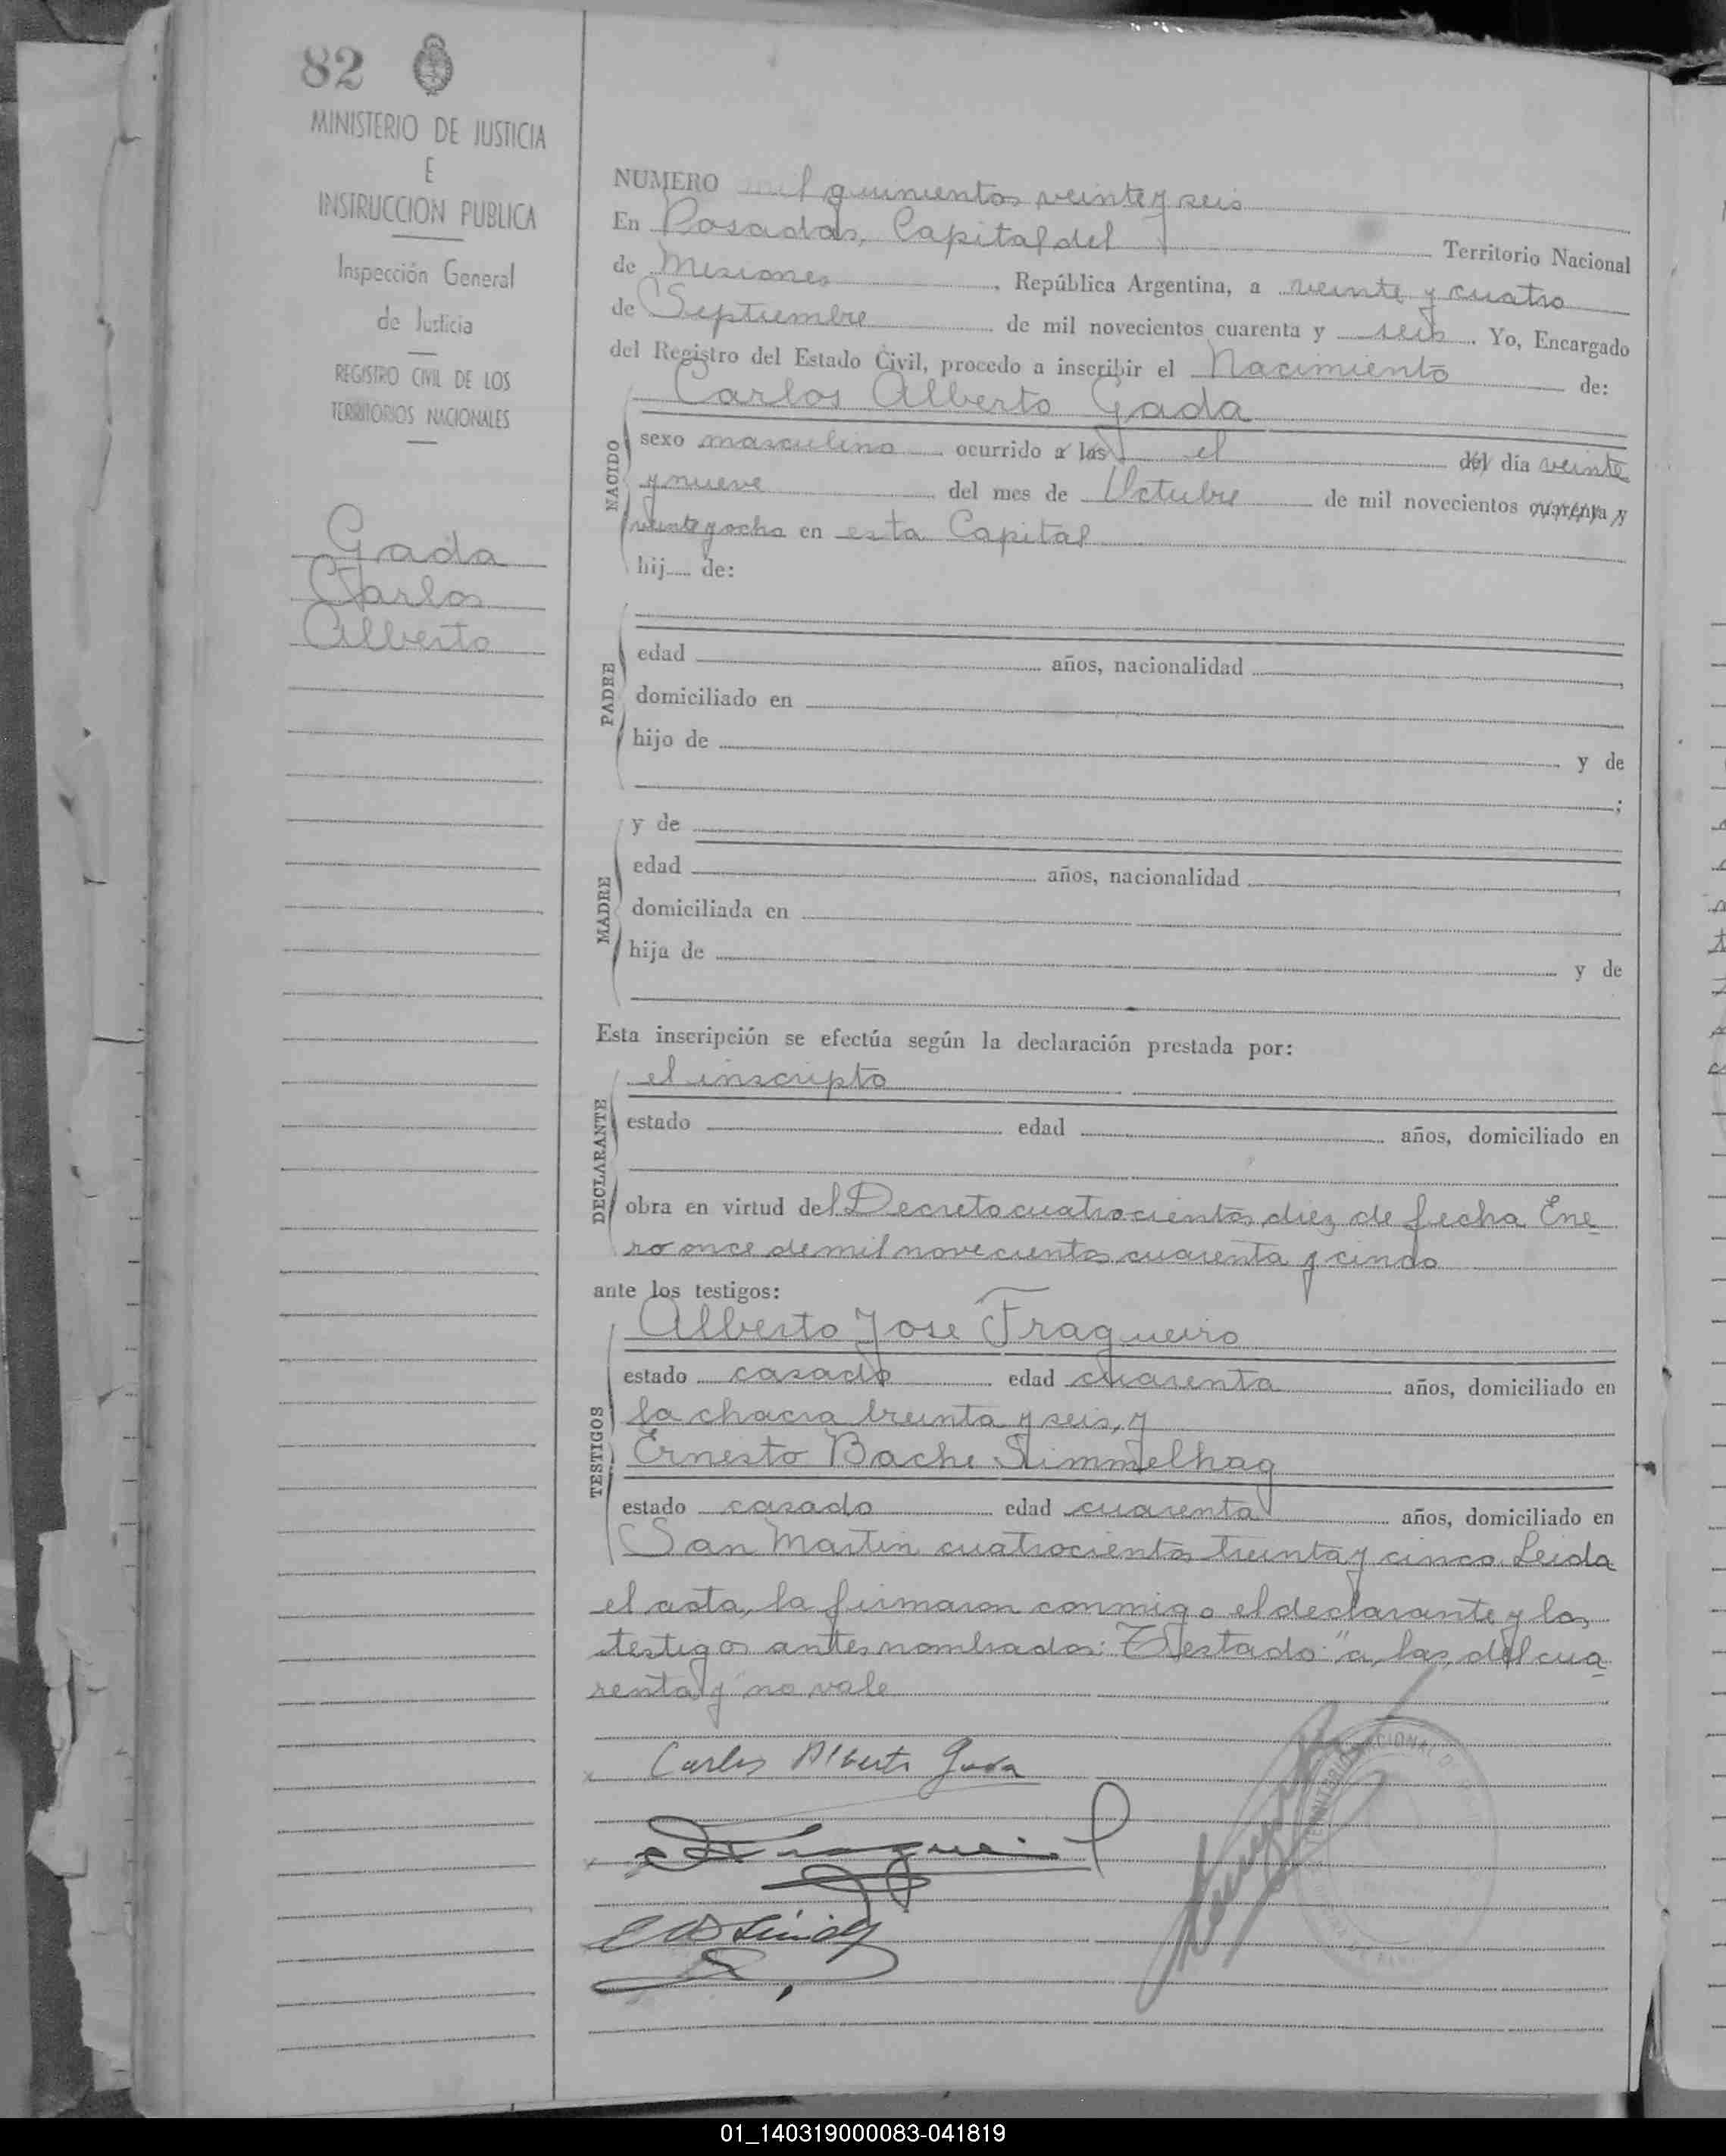 82
MINISTERIO DE JUSTICIA
E
INSTRUCCION PUBLICA
Inspección General
de Justicia
REGISTRO CIVIL DE LOS
TERRITORIOS NACIONALES
Gada
Carlos
Alberto
NUMERO mil quinientos veinte y seis
En Posadas, Capital del Territorio Nacional
de Misiones, República Argentina, a veinte y cuatro
de Septiembre de mil novecientos cuarenta y seis. Yo, Encargado
del Registro del Estado Civil, procedo a inscribir el Nacimiento de:
Carlos Alberto Gada
NACIDO
sexo masculino ocurrido a las el del día veinte
y nueve del mes de Octubre de mil novecientos cuarenta y
veinte y ocho en esta Capital
hij de:
PADRE
edad años, nacionalidad
domiciliado en
hijo de y de
;
MADRE
y de
edad años, nacionalidad
domiciliada en
hija de y de
Esta inscripción se efectúa según la declaración prestada por:
DECLARANTE
el inscripto
estado edad años, domiciliado en
obra en virtud del Decreto cuatrocientos diez de fecha Ene
ro once de mil novecientos cuarenta y cinco
ante los testigos:
TESTIGOS
Alberto Jose Fragueiro
estado casado edad cuarenta años, domiciliado en
la chacra treinta y seis, y
Ernesto Bache Simmelhag
estado casado edad cuarenta años, domiciliado en
San Martin cuatrocientos treinta y cinco Leida
el acta, la firmaron conmigo el declarante y los
testigos antes nombrados: Testado: "a, las, del cua
renta y" no vale
Carlos Alberto Gada
01_140319000083-041819